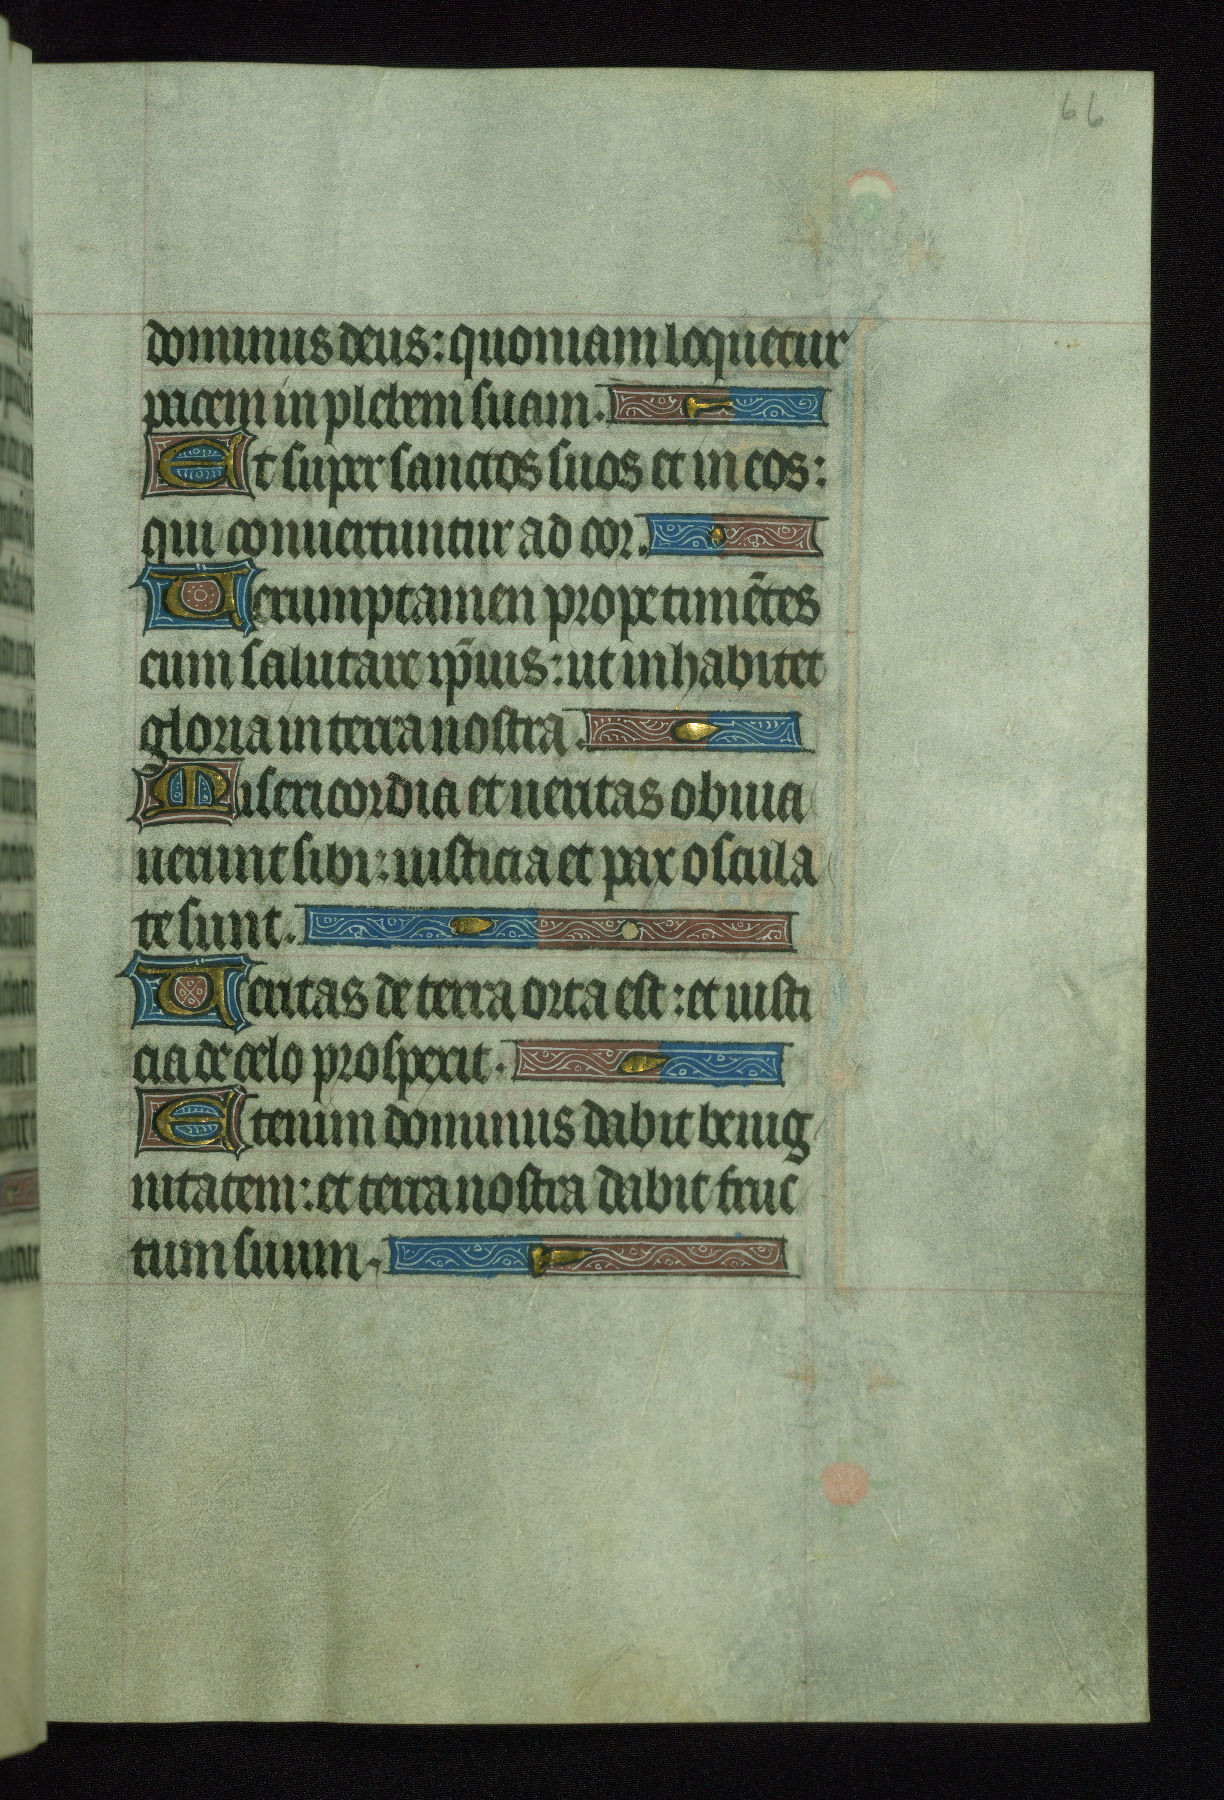 66
dominus deus: quoniam loquetur
pacem in plebem suam.
Et super sanctos suos et in eos:
qui conuertuntur ad cor.
Uerumptamen prope timētes
eum salutare ip̄ius: ut inhabitet
gloria in terra nostra.
Misericordia et ueritas obuia
uerunt sibi: iusticia et pax oscula
te sunt.
Ueritas de terra orta est: et iusti
cia de celo prospexit.
Etenim dominus dabit benig
nitatem: et terra nostra dabit fruc
tum suum.